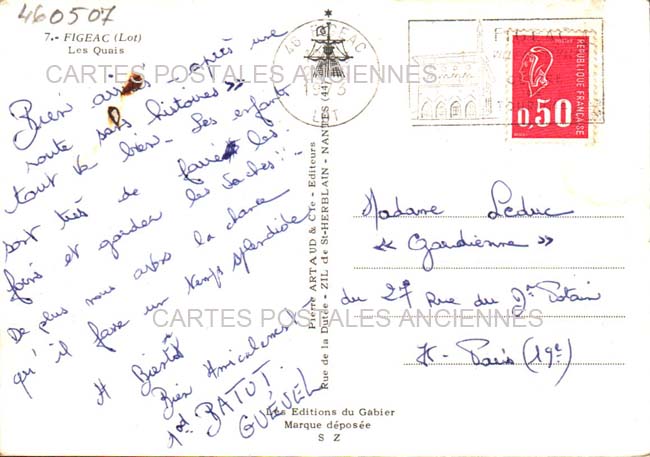 460507
7.- FIGEAC (Lot)
Les Quais
Bien arrivés après une
route sans histoires
tout va bien - Les enfants
sont très de faire les
foins et garder les vaches!
De plus nous avons la chance
qu'il fasse un temps splendide
A Bientôt
Bien Amicalement
BATUT.
GUÉVEL
CARTES POSTALES ANCIENNES
CARTES POSTALES ANCIENNES
Pierre ARTAUD & Cie - Editeurs
Rue de la Dutée - ZIL de St-HERBLAIN - NANTES (44)
46 FIGEAC
LOT
POSTES
RÉPUBLIQUE FRANÇAISE
0,50
Madame Leduc
« Gardienne »
du 27 Rue du Dr Potain
Paris (19e)
Les Editions du Gabier
Marque déposée
S Z